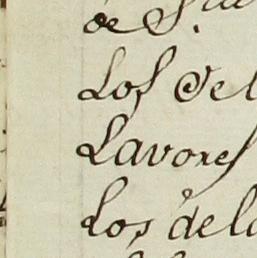 de S.
Los de l
Lavores
Los de la